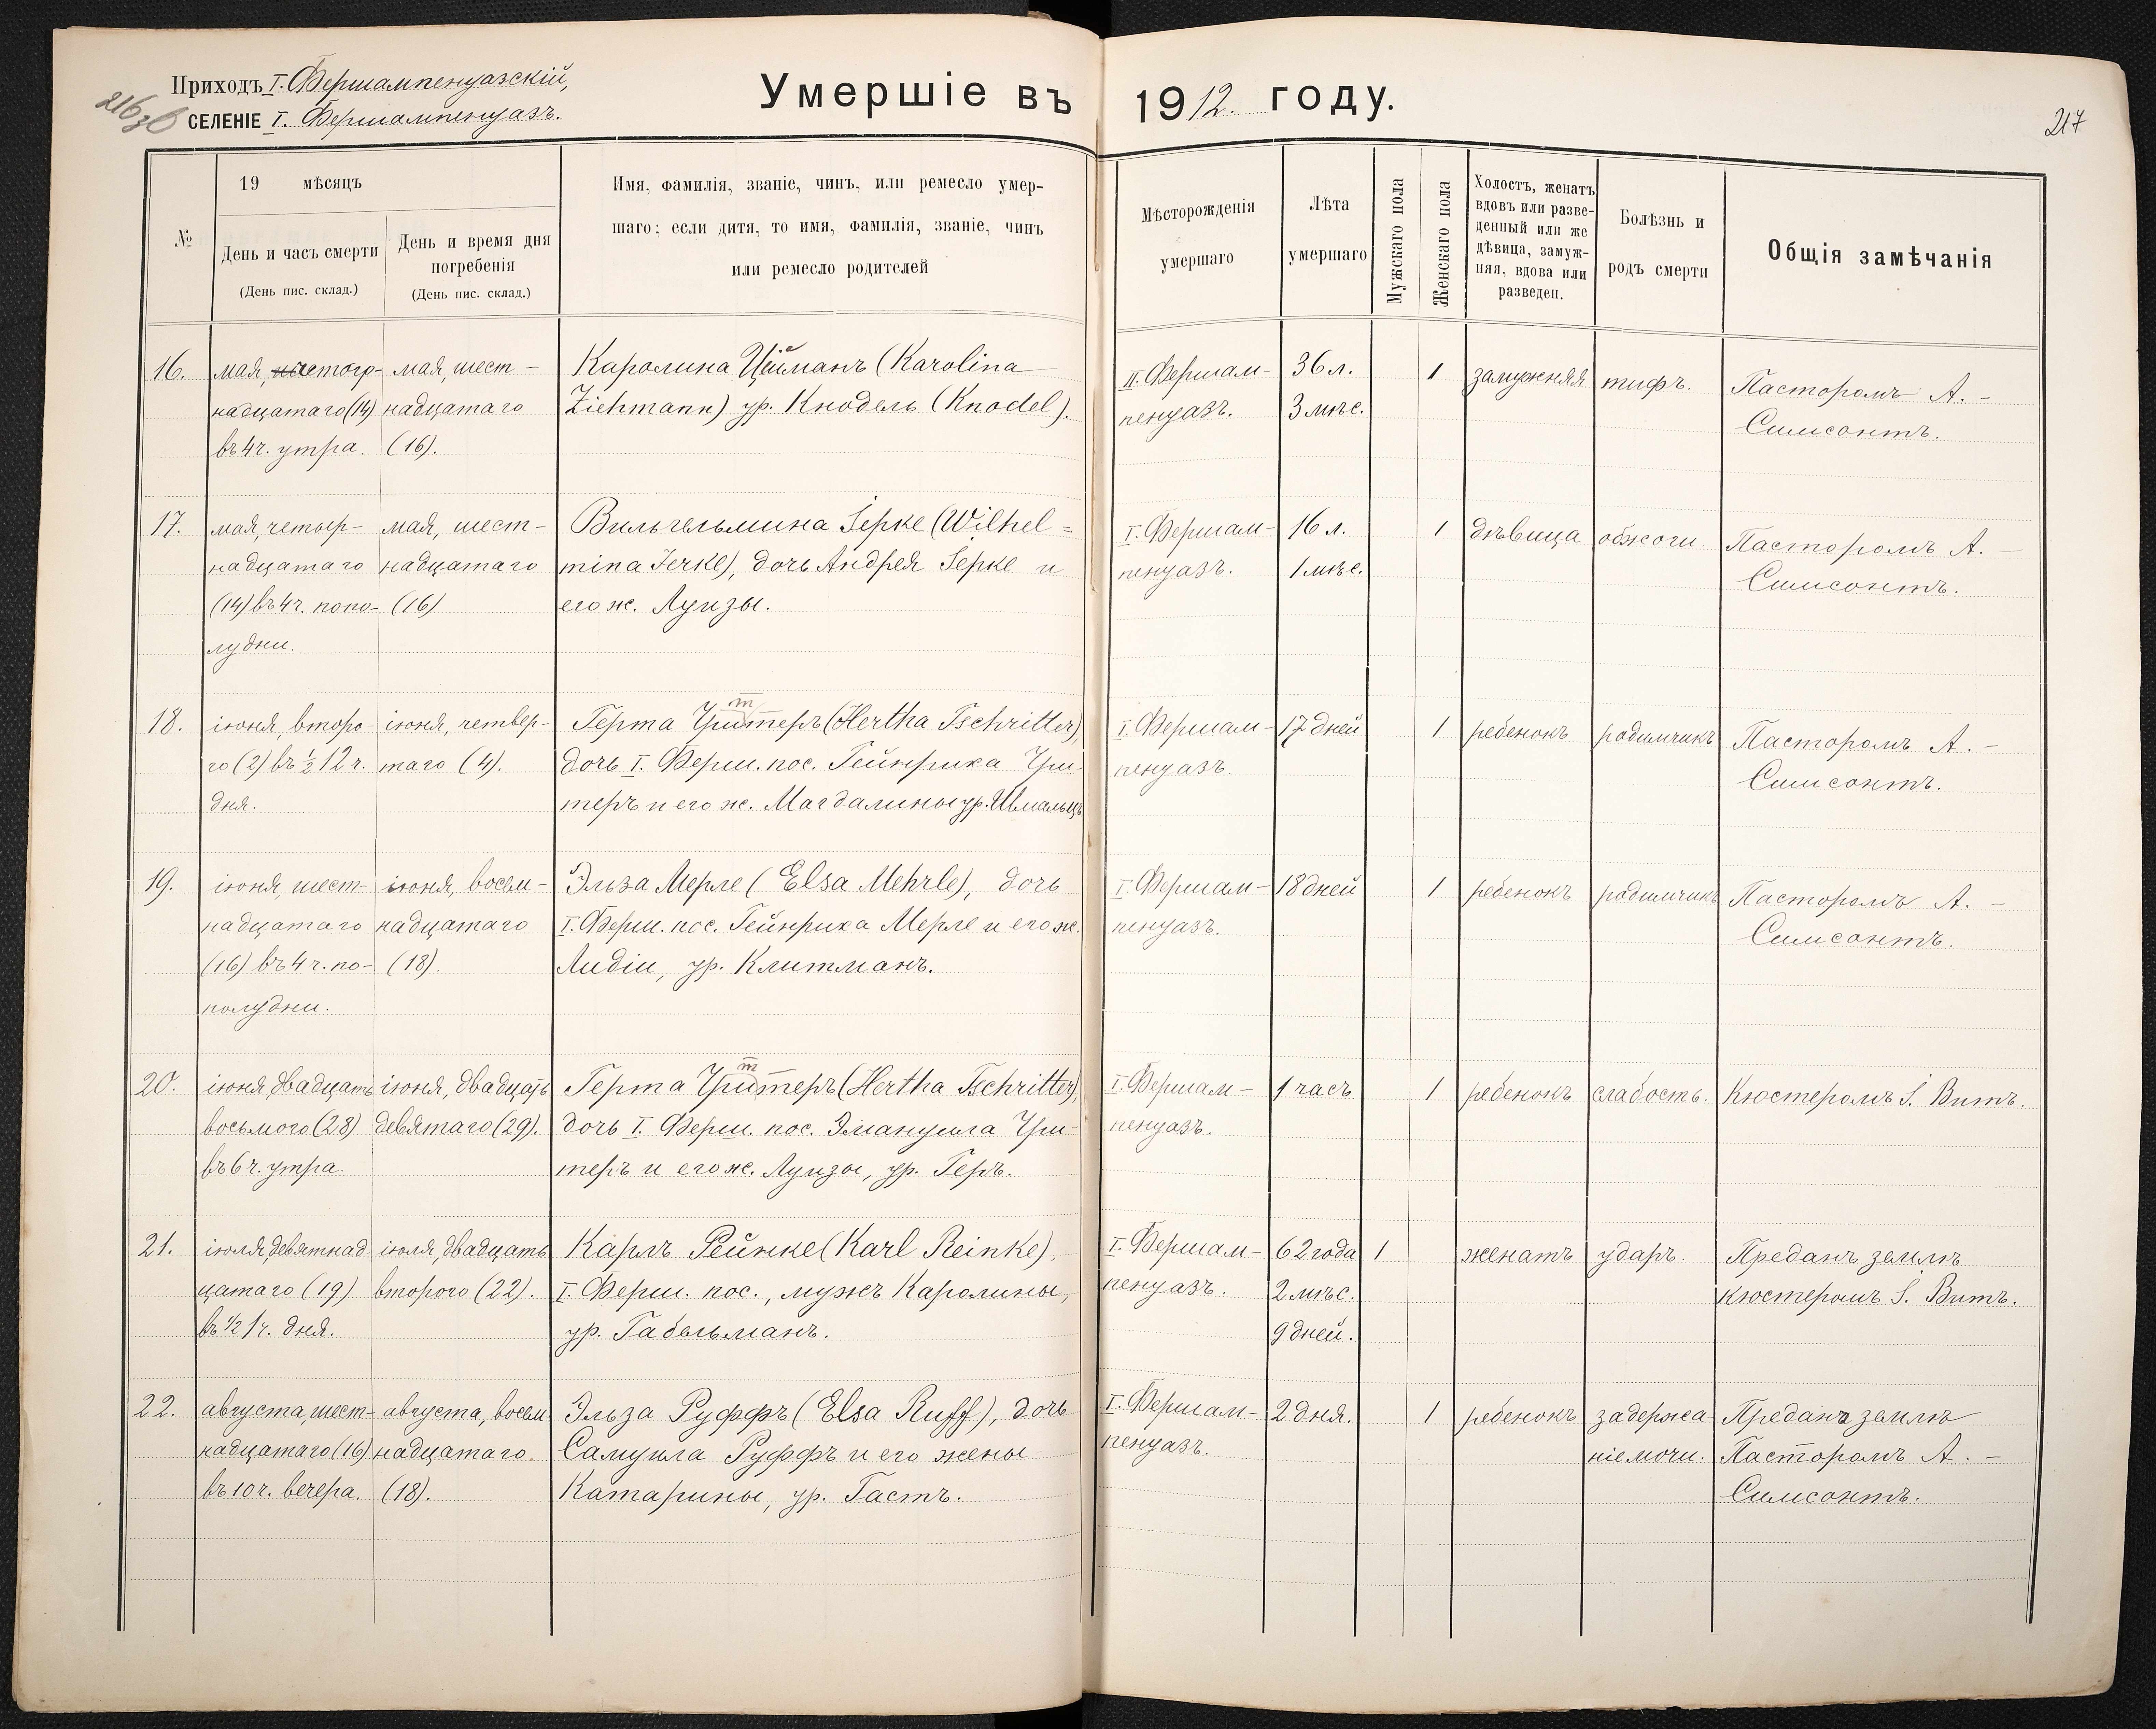 Приходъ I. Фершампенуазскій,
216 об
СЕЛЕНІЕ I. Фершампенуазъ.
Умершіе въ 1912. году.
217
№
19 мѣсяцъ
День и часъ смерти
(День пис. склад.)
День и время дня
погребенія
(День пис. склад.)
Имя, фамилія, званіе, чинъ, или ремесло умер-
шаго; если дитя, то имя, фамилія, званіе, чинъ
или ремесло родителей
Мѣсторожденія
умершаго
Лѣта
умершаго
Мужскаго пола
Женскаго пола
Холостъ, женатъ
вдовъ или разве-
денный или же
дѣвица, замуж-
няя, вдова или
разведен.
Болѣзнь и
родъ смерти
Общія замѣчанія
16.
мая,
надцатаго (14)
въ 4 ч. утра.
мая, шест-
надцатаго
(16).
Каролина Циманъ (Karolina
Ziehmann) ур. Кнодель (Knodel).
II. Фершам-
пенуазъ.
36 л.
3 мѣс.
1
замужняя
тифъ.
Пасторомъ А. -
Симсонтъ.
17.
мая, четыр-
надцатаго
(14) въ 4 ч. попо-
лудни.
мая, шест-
надцатаго
(16)
Вильгельмина Іерке (Wilhel=
mina Jerke), дочь Андрея Іерке и
его ж. Луизы.
I. Фершам-
пенуазъ.
16 л.
1 мѣс.
1
дѣвица
обжоги
Пасторомъ А. -
Симсонтъ.
18.
іюня, второ-
го (2) въ ½ 12 ч.
дня.
іюня, четвер-
таго (4).
т
Герта Чриттеръ (Hertha Tschritter),
дочь I. Ферш. пос. Гейнриха Чри-
теръ и его ж. Магдалины ур. Шмальцъ
I. Фершам-
пенуазъ.
17 дней
1
ребенокъ
родимчикъ
Пасторомъ А. -
Симсонтъ.
19.
іюня, шест-
надцатаго
(16) въ 4 ч. по-
полудни.
іюня, восем-
надцатаго
(18).
Эльза Мерле (Elsa Mehrle), дочь
I. Ферш. пос. Гейнриха Мерле и его ж.
Лидіи, ур. Клитманъ.
I. Фершам-
пенуазъ.
18 дней
1
ребенокъ
родимчикъ
Пасторомъ А. -
Симсонтъ.
20.
іюня, двадцать
восьмого (28)
въ 6 ч. утра.
іюня, двадцать
девятаго (29).
т
Герта Чриттеръ (Hertha Tschritter),
дочь I. Ферш. пос. Эмануила Чри-
теръ и его ж. Луизы, ур. Геръ.
I. Фершам-
пенуазъ.
1 часъ
1
ребенокъ
слабость.
Кюстеромъ І. Витъ.
21.
іюля, девятнад-
цатаго (19)
въ ½ 1 ч. дня.
іюля, двадцать
второго (22).
Карлъ Рейнке (Karl Reinke),
I. Ферш. пос., мужъ Каролины,
ур. Габельманъ.
I. Фершам-
пенуазъ.
62 года
2 мѣс.
9 дней.
1
женатъ
ударъ.
Преданъ землѣ
Кюстеромъ І. Витъ.
22.
августа, шест-
надцатаго (16)
въ 10 ч. вечера.
августа, восем-
надцатаго.
(18).
Эльза Руффъ (Elsa Ruff), дочь
Самуила Руффъ и его жены
Катарины, ур. Гастъ.
I. Фершам-
пенуазъ.
2 дня.
1
ребенокъ
задержа-
ніе мочи.
Преданъ землѣ
Пасторомъ А. -
Симсонтъ.